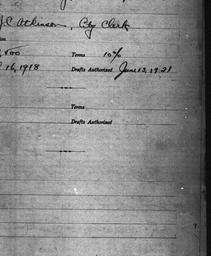 J.C. Atkinson, City Clerk
Terms 10%
16, 1918 Drafts Authorized June 13, 1921
Terms
Drafts Authorized